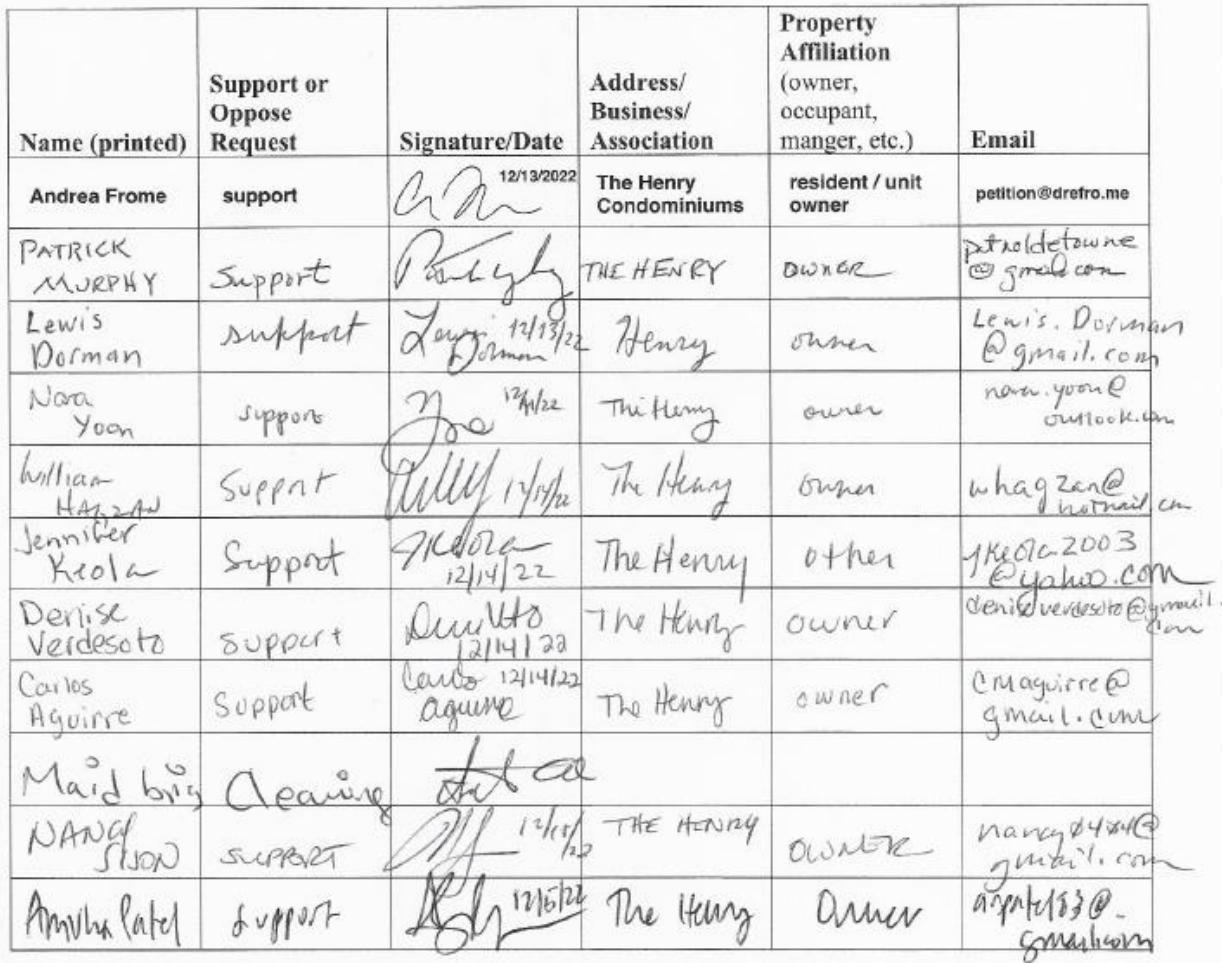 Name (printed)
Support or
Oppose
Request
Signature/Date
Address/
Business/
Association
Property
Affiliation
(owner,
occupant,
manger, etc.)
Email
Andrea Frome
support
12/13/2022
The Henry
Condominiums
resident / unit
owner
petition@drefro.me
PATRICK
MURPHY
Support
THE HENRY
OWNER
@gmail.com
Lewis
Dorman
support
Lewis 12/13/22
Dorman
Henry
owner
Lewis.Dorman
@gmail.com
Nora
Yoon
support
The Henry
owner
nora.yoon@
outlook.com
William
HAGZAN
Support
12/14/22
The Henry
owner
whagzan@
hotmail.com
Jennifer
Keola
Support
JKeola
12/14/22
The Henry
other
jkeola2003
@yahoo.com
Denise
Verdesoto
support
12/14/22
The Henry
owner
deniseverdesoto@gmail.
com
Carlos
Aguirre
Support
Carlos 12/14/22
aguirre
The Henry
owner
cmaguirre@
gmail.com
Maid brig
Cleaning
NANCY
SIJON
SUPPORT
12/15/
22
THE HENRY
OWNER
gmail.com
Patel
support
12/15/22
The Henry
Owner
gmail.com